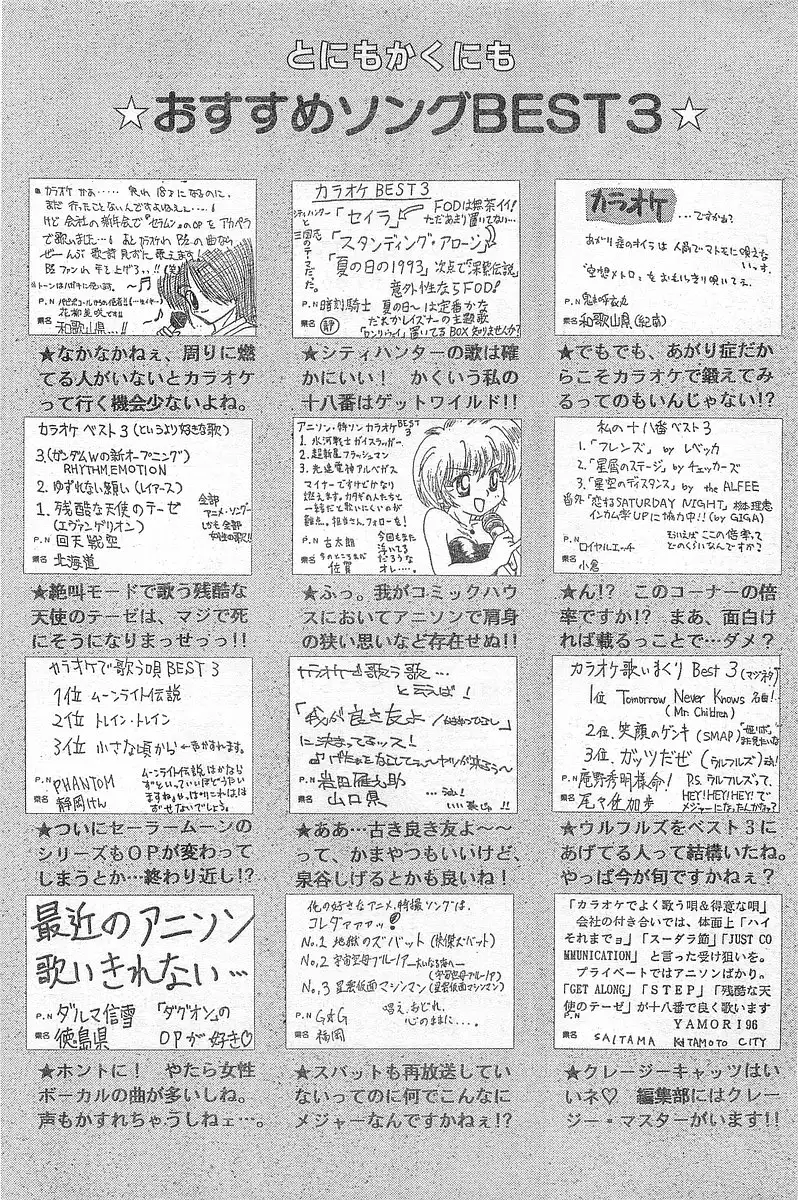 とにもかくにも
☆おすすめソングBEST3☆
カラオケかぁ……
まだ行ったことないんですよねぇ…
P.N
県名 和歌山県…!!
★なかなかねぇ、周りに燃
てる人がいないとカラオケ
って行く機会少ないよね。
カラオケ BEST 3
シティハンターと三国志のテーマだ。
「セイラ」
FODは無茶イイ!
ただあまり置いてない…
「スタンディング・アロージ」
「夏の日の1993」次点で「深紅伝説」
意外性ならFOD!
P.N 時刻騎士 夏の日〜は定番かな
県名 静 だれかレイズナーの主題歌
「ロンリウェイ」置いてるBOX知りませんか?
★シティハンターの歌は確
かにいい! かくいう私の
十八番はゲットワイルド!!
カラオケ
…ですかぁ?
あがり症のオイラは人前でマトモに唄えないっす。
「空想メトロ」をおもいっきり唄いてぇ。
P.N
県名 和歌山県(紀南)
★でもでも、あがり症だか
らこそカラオケで鍛えてみ
るってのもいんじゃない!?
カラオケ ベスト3(というより好きな歌)
3.(ガンダムWの新オープニング)
RHYTHM EMOTION
2. ゆずれない願い(レイアース)
1. 残酷な天使のテーゼ
(エヴァンゲリオン)
全部アニメ・ソング
しかも全部女性の歌!!
P.N 回天戦空
県名 北海道
★絶叫モードで歌う残酷な
天使のテーゼは、マジで死
にそうになりまっせっっ!!
アニソン・特ソン カラオケBEST3
1. 氷河戦士ガイスラッガー
2. 超新星フラッシュマン
3. 光速電神アルベガス
マイナーですけどかなり
燃えます。カタギの人たちと
一緒だと歌いにくいのが
難点。担当さんフォローを!
P.N 古太郎
県名 今のところまだ 佐賀
今回もまた
浮いてる
だろうな
オレ…。
★ふっ。我がコミックハウ
スにおいてアニソンで肩身
の狭い思いなど存在せぬ!!
私の十八番ベスト3
1.「フレンズ」by レベッカ
2.「星屑のステージ」by チェッカーズ
3.「星空のディスタンス」by the ALFEE
番外「恋はSATURDAY NIGHT」
インカム率UPに協力中!!(by GIGA)
P.N ロイヤルエッチ
県名 小倉
そういえばここの倍率って
どのくらいなんですか?
★ん!? このコーナーの倍
率ですか!? まあ、面白け
れば載るっことで…ダメ?
カラオケで歌う唄BEST3
1位 ムーンライト伝説
2位 トレイン・トレイン
3位 小さな頃から ←声かすれます。
P.N PHANTOM
県名 静岡けん
ムーンライト伝説はかなら
ずといっていいほどうたい
ますね。やっぱりこれは
はずせないでしょう。
★ついにセーラームーンの
シリーズもOPが変わって
しまうとか…終わり近し!?
カラオケで歌う歌…
と言えば!
「我が良き友よ/かまやつひろし」
に決まってるッス!
P.N 岩田雁之助
県名 山口県
…うぉ!
いい歌じゃ!!
★ああ…古き良き友よ〜〜
って、かまやつもいいけど、
泉谷しげるとかも良いね!
カラオケ歌いまくり Best 3(マジネタ)
1位 Tomorrow Never Knows 名曲!
(Mr. Children)
2位. 笑顔のゲンキ (SMAP)
3位. ガッツだぜ (ウルフルズ)
P.N 庵野秀明様命!
県名
P.S. ウルフルズって、
HEY!HEY!HEY!で
メジャーになったんかな?
★ウルフルズをベスト3に
あげてる人って結構いたね。
やっぱ今が旬ですかねぇ?
最近のアニソン
歌いきれない…
P.N ダルマ信雪
県名 徳島県
「ダグオン」の
OPが好き♡
★ホントに! やたら女性
ボーカルの曲が多いしね。
声もかすれちゃうしねェ…。
俺の好きなアニメ,特撮ソングは、
コレダァァァッ!
No.1 地獄のズバット (快傑ズバット)
No.2 宇宙空母ブルーノア
(宇宙空母ブルーノア)
No.3 星雲仮面マシンマン(星雲仮面マシンマン)
P.N G☆G
県名 福岡
唱え、おどれ、
心のままに…。
★スバットも再放送してい
ないってのに何でこんなに
メジャーなんですかねぇ!?
「カラオケでよく歌う唄&得意な唄」
会社の付き合いでは、体面上「ハイ
それまでョ」「スーダラ節」「JUST CO
MMUNICATION」と言った受け狙いを。
プライベートではアニソンばかり。
「GET ALONG」「STEP」「残酷な天
使のテーゼ」が十八番で良く歌います
P.N
YAMORI96
県名 SAITAMA KITAMOTO CITY
★クレージーキャッツはい
いネ♡ 編集部にはクレー
ジー・マスターがいます!!